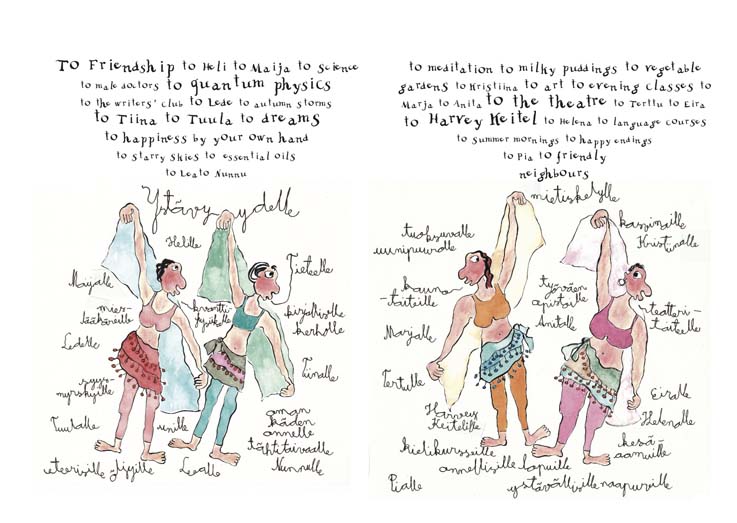 To Friendship to Heli to Maija to Science
to male doctors to quantum physics
to the writers' club to Lede to autumn storms
to Tiina to Tuula to dreams
to happiness by your own hand
to starry skies to essential oils
to Lea to Nunnu
Ystävyydelle
Helille
Tieteelle
Maijalle
mies-
lääkäreille
kvantti-
fysiikalle
kirjallisille
kerholle
Ledelle
Tiinalle
syys-
myrskyille
Tuulalle
unille
oman
käden
onnelle
tähtitaivaalle
eteerisille öljyille
Lealle
Nunnulle
to meditation to milky puddings to vegetable
gardens to Kristiina to art to evening classes to
Marja to Anita to the theatre to Terttu to Eira
to Harvey Keitel to Helena to language courses
to summer mornings to happy endings
to Pia to friendly
neighbours
mietiskelylle
tuoksuvalle
uunipuurolle
kasvimaille
Kristiinalle
kauno-
taiteille
työväen
opistoille
Anitalle
teatteri-
taiteelle
Marjalle
Tertulle
Eiralle
Harvey
Keitelille
Helenalle
kielikursseille
kesä-
aamuille
onnellisille lopuille
Pialle
ystävällisille naapureille